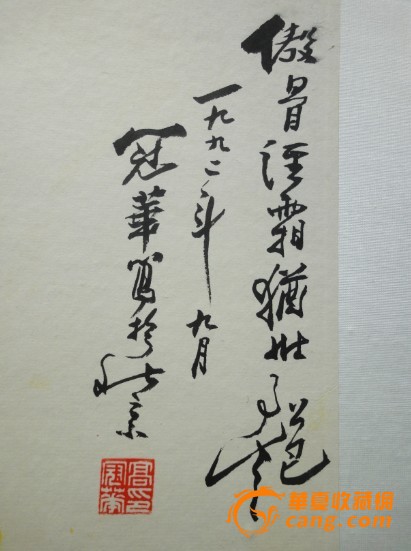 傲骨經霜猶壯
一九九二年九月
冠華寫於北京
高印
冠華
華夏收藏網
cang.com